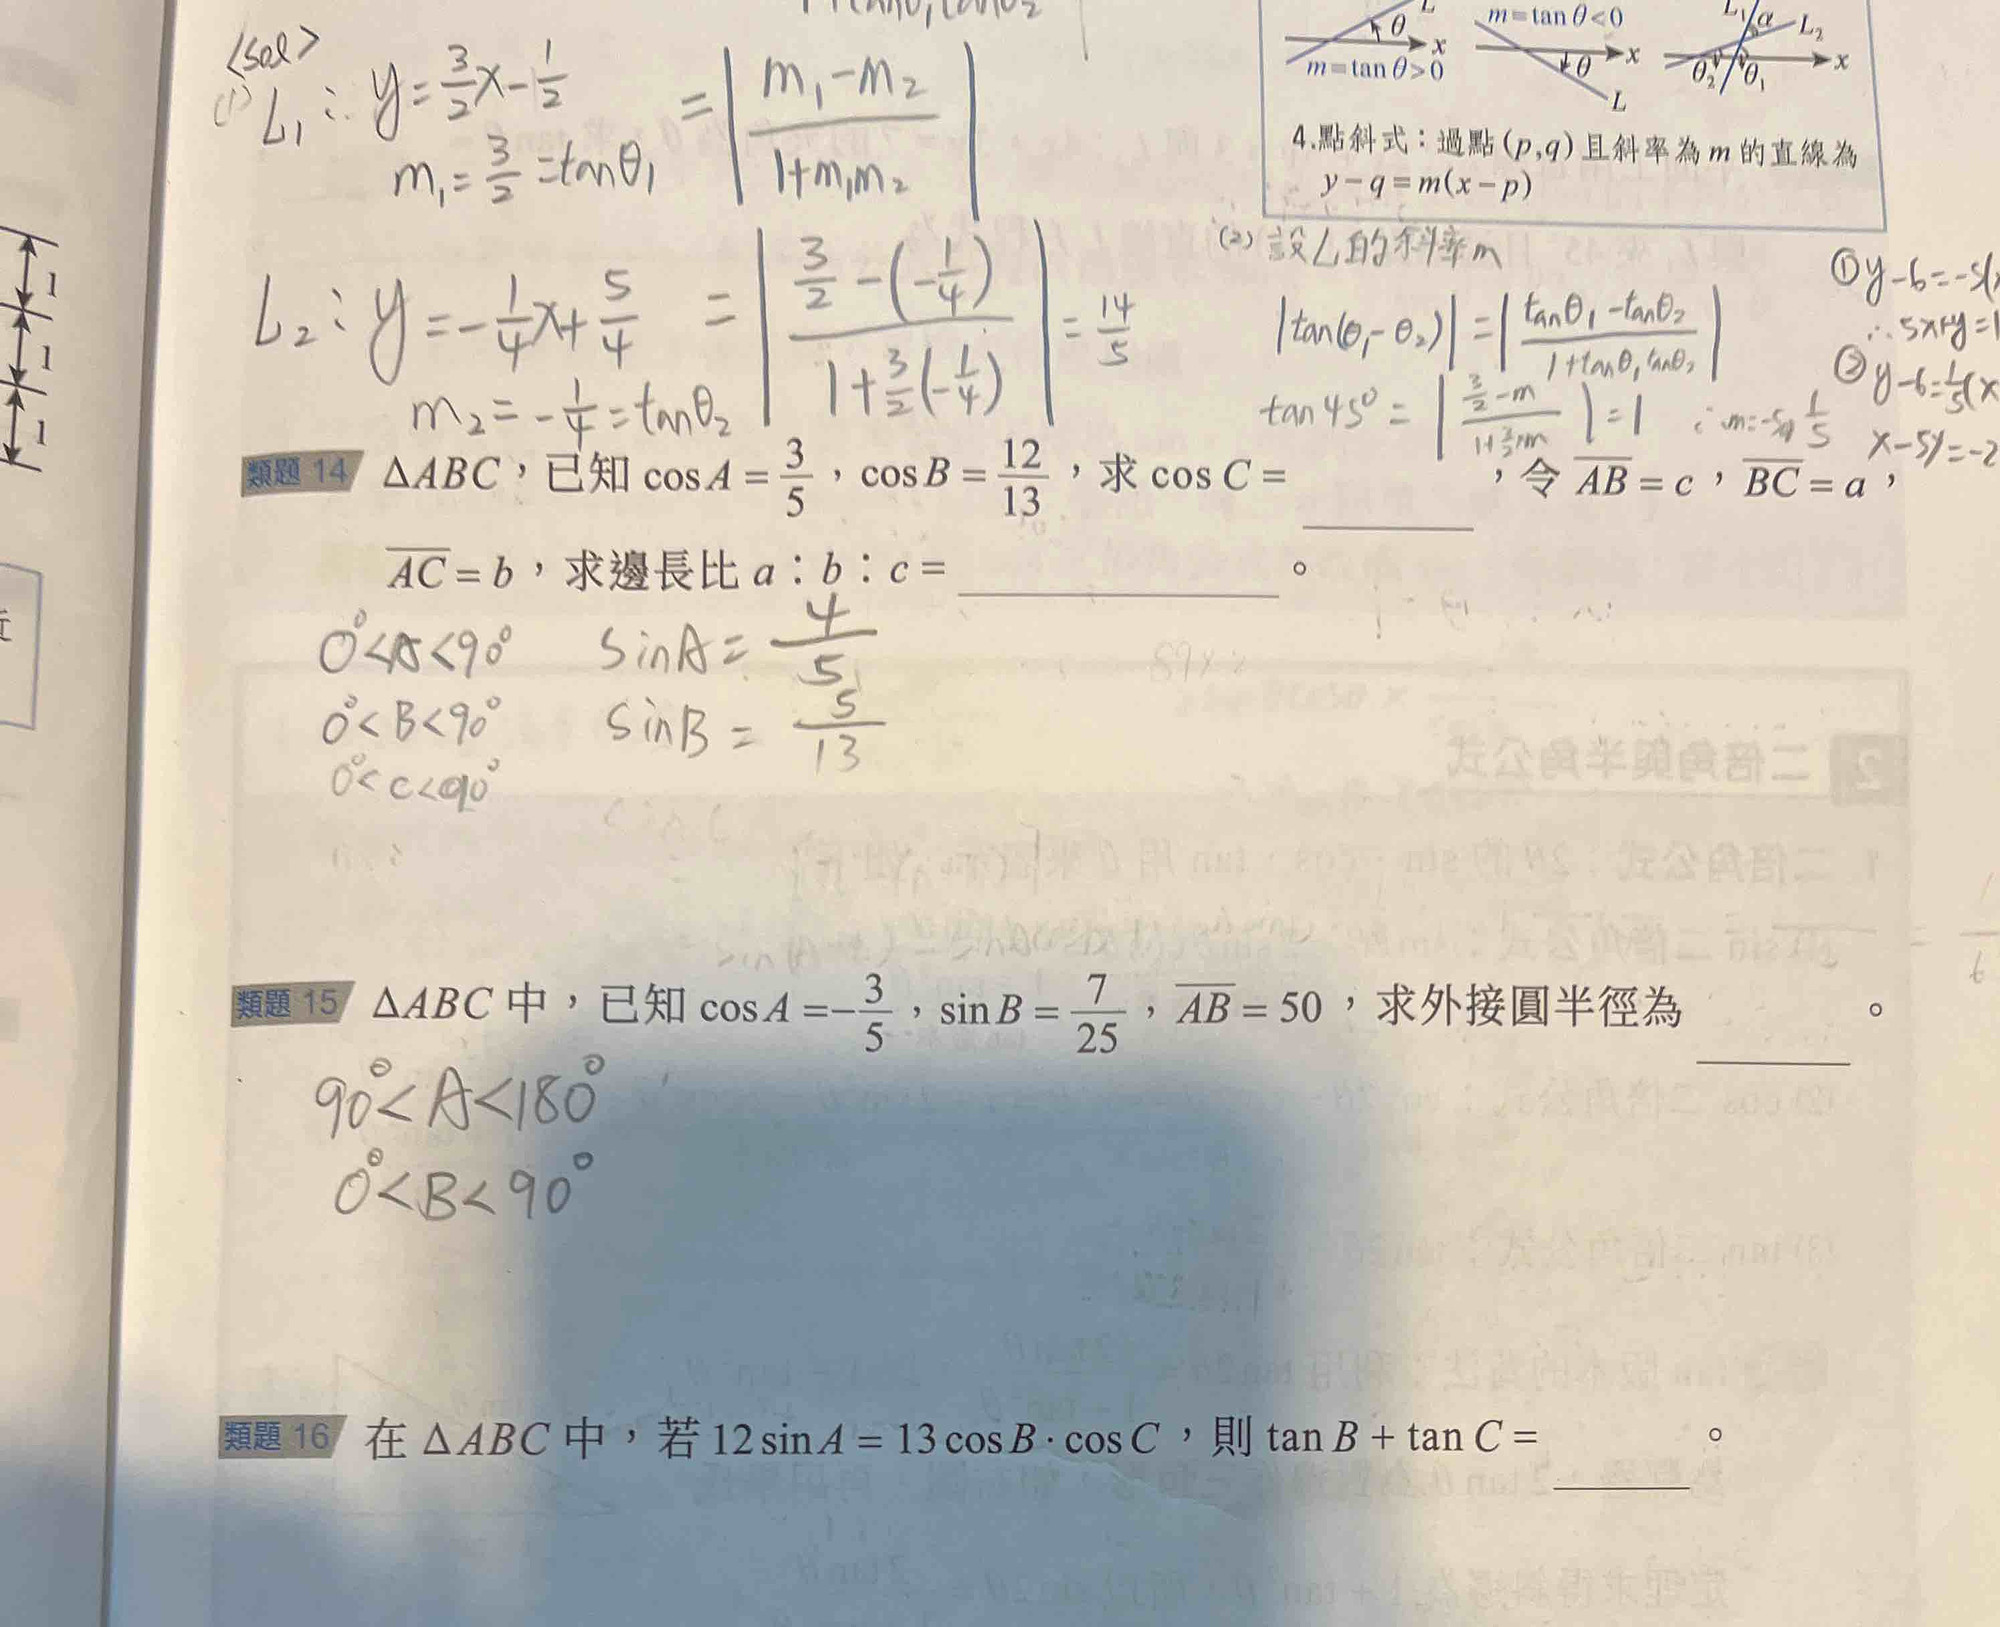 <sol>
(1) L₁: y = 3/2 x - 1/2
m₁ = 3/2 = tanθ₁
= | (m₁ - m₂) / (1 + m₁m₂) |
L₂: y = -1/4 x + 5/4
m₂ = -1/4 = tanθ₂
= | (3/2 - (-1/4)) / (1 + 3/2(-1/4)) | = 14/5
L θ x
m = tan θ > 0
m = tan θ < 0
x θ L
L₁ α L₂ x θ₂ θ₁
4.點斜式：過點 (p,q) 且斜率為 m 的直線為
y − q = m(x − p)
(2) 設L的斜率m
|tan(θ₁ - θ₂)| = | (tanθ₁ - tanθ₂) / (1 + tanθ₁tanθ₂) |
tan45° = | (3/2 - m) / (1 + 3/2 m) | = 1
① y - 6 = -5(x
∴ 5x + y = 1
② y - 6 = 1/5 (x
x - 5y = -2
1
1
1
類題 14 ΔABC，已知 cos A = 3/5，cos B = 12/13，求 cos C = ______，令 AB = c，BC = a，
AC = b，求邊長比 a：b：c = ______。
0° < A < 90° sinA = 4/5
0° < B < 90° sinB = 5/13
0° < C < 90°
類題 15 ΔABC 中，已知 cos A = −3/5，sin B = 7/25，AB = 50，求外接圓半徑為 ______。
90° < A < 180°
0° < B < 90°
類題 16 在 ΔABC 中，若 12 sin A = 13 cos B · cos C，則 tan B + tan C = ______。